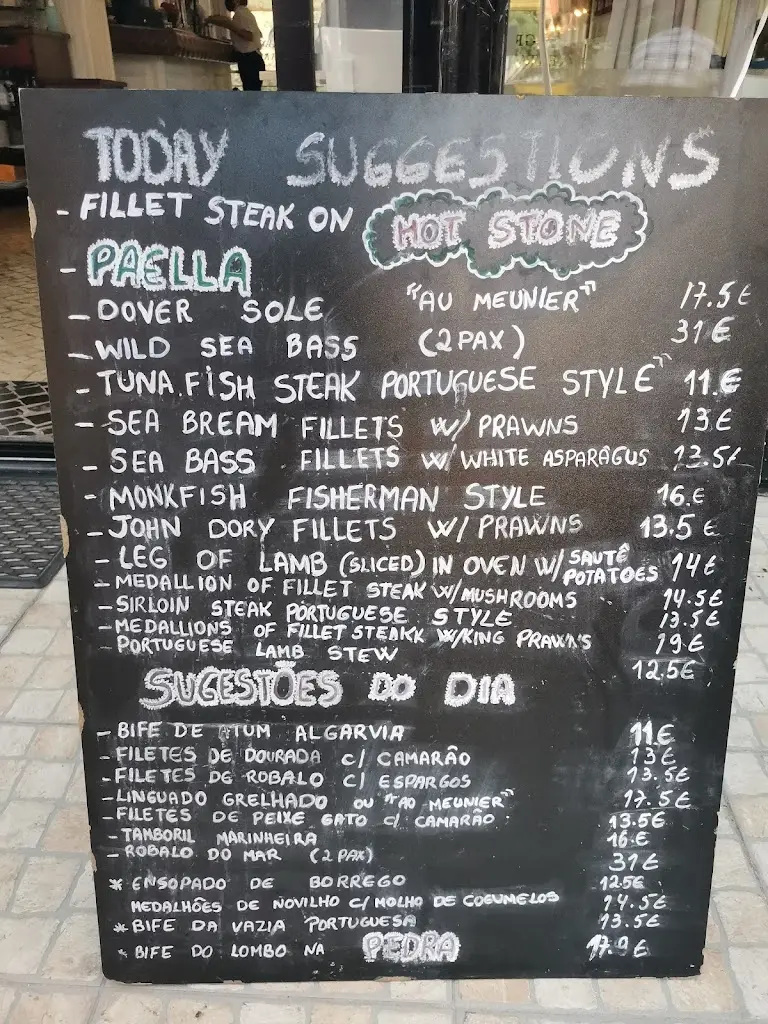 TODAY SUGGESTIONS
- FILLET STEAK ON HOT STONE
- PAELLA
- DOVER SOLE "AU MEUNIER" 17.5€
- WILD SEA BASS (2PAX) 31€
- TUNA.FISH STEAK PORTUGUESE STYLE" 11.€
- SEA BREAM FILLETS W/ PRAWNS 13.€
- SEA BASS FILLETS W/ WHITE ASPARAGUS 13.5€
- MONKFISH FISHERMAN STYLE 16.€
- JOHN DORY FILLETS W/ PRAWNS 13.5€
- LEG OF LAMB (SLICED) IN OVEN W/ SAUTÊ POTATOES 14€
- MEDALLION OF FILLET STEAK W/MUSHROOMS 14.5€
- SIRLOIN STEAK PORTUGUESE STYLE 13.5€
- MEDALLIONS OF FILLET STEAKK W/KING PRAWN'S 19.€
- PORTUGUESE LAMB STEW 12.5€
SUGESTÕES DO DIA
- BIFE DE ATUM ALGARVIA 11.€
- FILETES DE DOURADA C/ CAMARÃO 13€
- FILETES DE ROBALO C/ ESPARGOS 13.5€
- LINGUADO GRELHADO OU "AO MEUNIER" 17.5€
- FILETES DE PEIXE GATO C/ CAMARÃO 13.5€
- TAMBORIL MARINHEIRA 16.€
- ROBALO DO MAR (2 PAX) 31€
* ENSOPADO DE BORREGO 12.5€
MEDALHÕES DE NOVILHO C/ MOLHO DE COGUMELOS 14.5€
* BIFE DA VAZIA PORTUGUESA 13.5€
* BIFE DO LOMBO NA PEDRA 17.9€